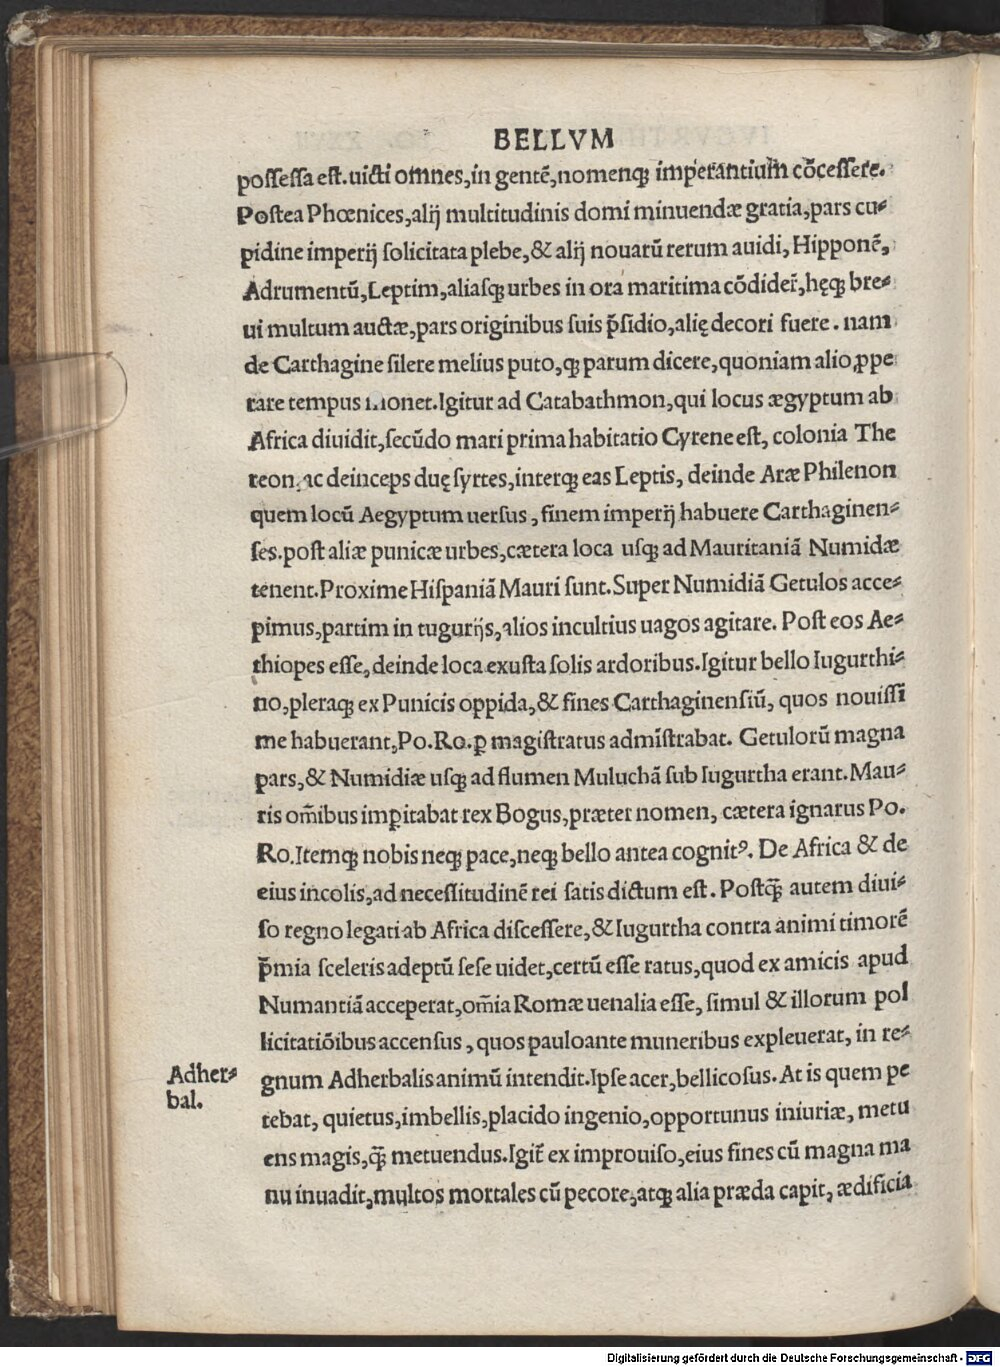 BELLVM
possessa est. uicti omnes, in gentẽ, nomenqꝫ imperantium cõcessere.
Postea Phœnices, alij multitudinis domi minuendæ gratia, pars cu⸗
pidine imperij solicitata plebe, & alij nouarũ rerum auidi, Hipponẽ,
Adrumentũ, Leptim, aliasqꝫ urbes in ora maritima cõdider̃, hęqꝫ bre⸗
ui multum auctæ, pars originibus suis p̃sidio, alię decori fuere. nam
de Carthagine silere melius puto, qꝫ parum dicere, quoniam alio ꝓpe
rare tempus monet. Igitur ad Catabathmon, qui locus ægyptum ab
Africa diuidit, secũdo mari prima habitatio Cyrene est, colonia The
reon, ac deinceps duę syrtes, interqꝫ eas Leptis, deinde Aræ Philenon
quem locũ Aegyptum uersus, finem imperij habuere Carthaginen⸗
ses. post aliæ punicæ urbes, cætera loca usqꝫ ad Mauritaniã Numidæ
tenent. Proxime Hispaniã Mauri sunt. Super Numidiã Getulos acce⸗
pimus, partim in tugurijs, alios incultius uagos agitare. Post eos Ae⸗
thiopes esse, deinde loca exusta solis ardoribus. Igitur bello Iugurthi⸗
no, pleraqꝫ ex Punicis oppida, & fines Carthaginensiũ, quos nouissi
me habuerant, Po. Ro. ꝑ magistratus admĩstrabat. Getulorũ magna
pars, & Numidiæ usqꝫ ad flumen Muluchã sub Iugurtha erant. Mau⸗
ris om̃ibus impitabat rex Bogus, præter nomen, cætera ignarus Po.
Ro. Itemqꝫ nobis neqꝫ pace, neqꝫ bello antea cognitꝰ. De Africa & de
eius incolis, ad necessitudinẽ rei satis dictum est. Postqꝫ̃ autem diui⸗
so regno legati ab Africa discessere, & Iugurtha contra animi timorẽ
p̃mia sceleris adeptũ sese uidet, certũ esse ratus, quod ex amicis apud
Numantiã acceperat, om̃ia Romæ uenalia esse, simul & illorum pol
licitatiõibus accensus, quos pauloante muneribus expleuerat, in re⸗
gnum Adherbalis animũ intendit. Ipse acer, bellicosus. At is quem pe
tebat, quietus, imbellis, placido ingenio, opportunus iniuriæ, metu
ens magis, qꝫ̃ metuendus. Igit̃ ex improuiso, eius fines cũ magna ma
nu inuadit, multos mortales cũ pecore, atqꝫ alia præda capit, ædificia
Adher⸗
bal.
Digitalisierung gefördert durch die Deutsche Forschungsgemeinschaft - DFG